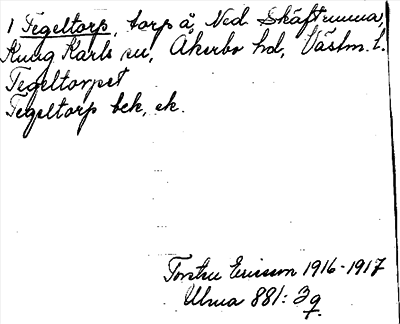 1 Tegeltorp, torp å, Ned. Skäftruna,
Kung Karls sn, Åkerbo hd, Västm. l.
Tegeltorpet
Tegeltorp bek, ek.
Torsten Ericson 1916-1917
Ulma 881: 3 q.